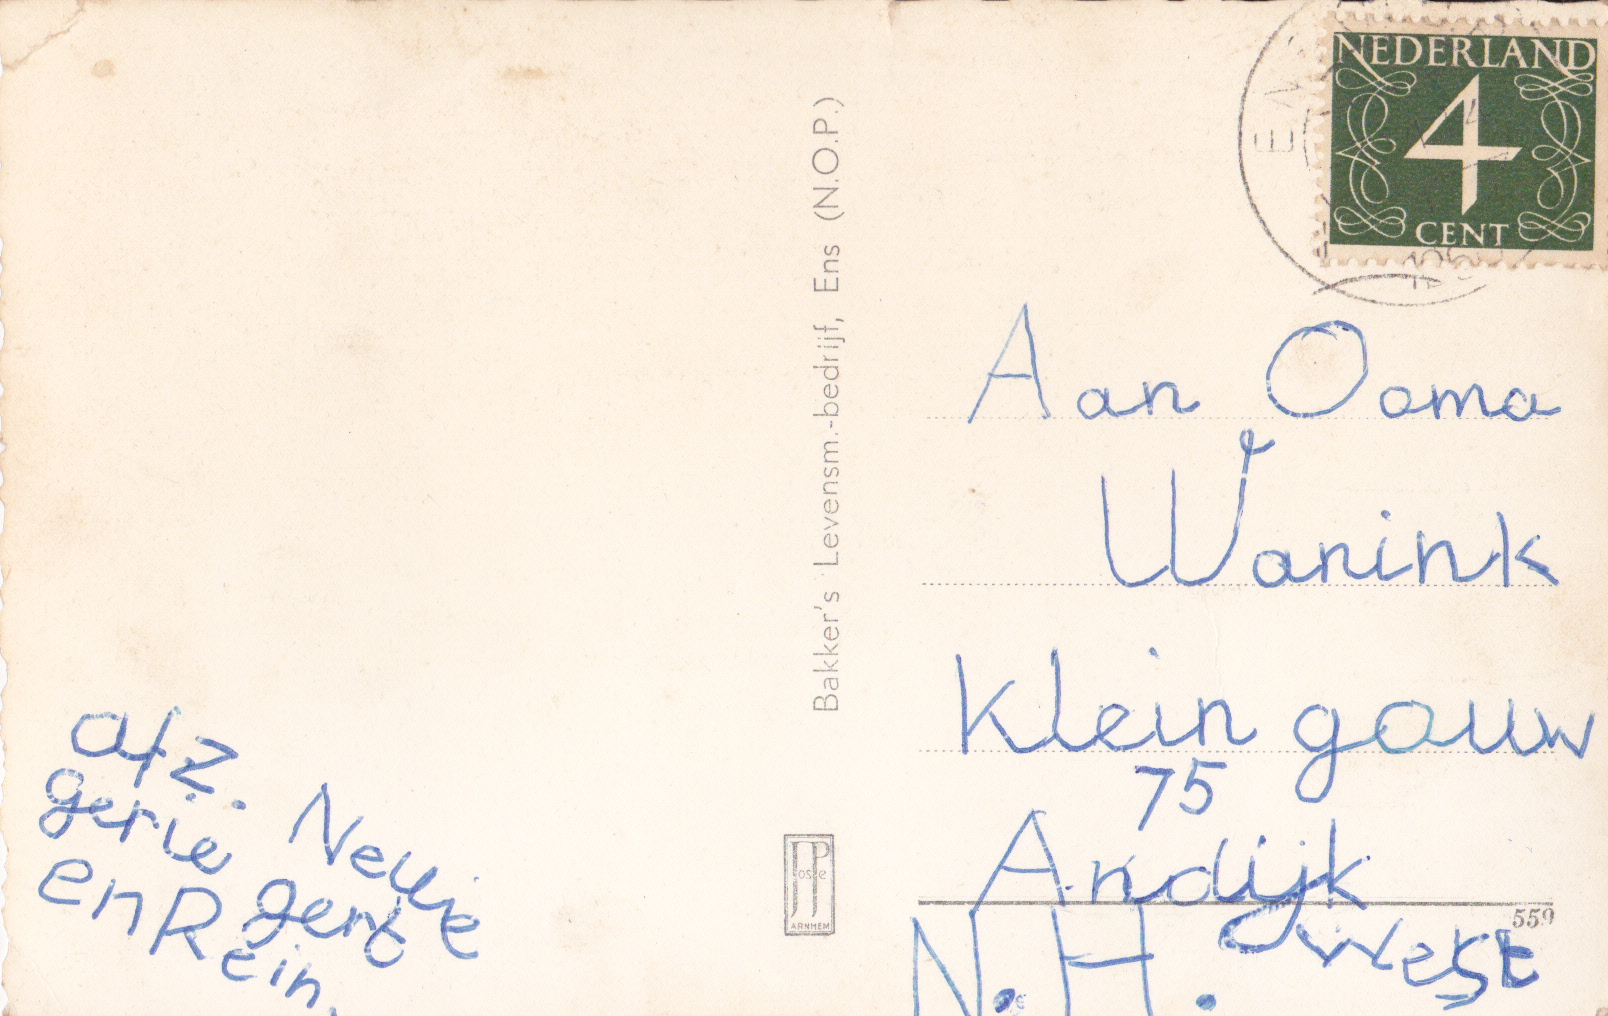 afz. Nellie
gerie gert
en Rein.
Bakker's Levensm.-bedrijf, Ens (N.O.P.)
JP
oste
ARNHEM
NEDERLAND
4
CENT
Aan Ooma
Wanink
Klein gouw
75
Andijk
west
N.H.
559